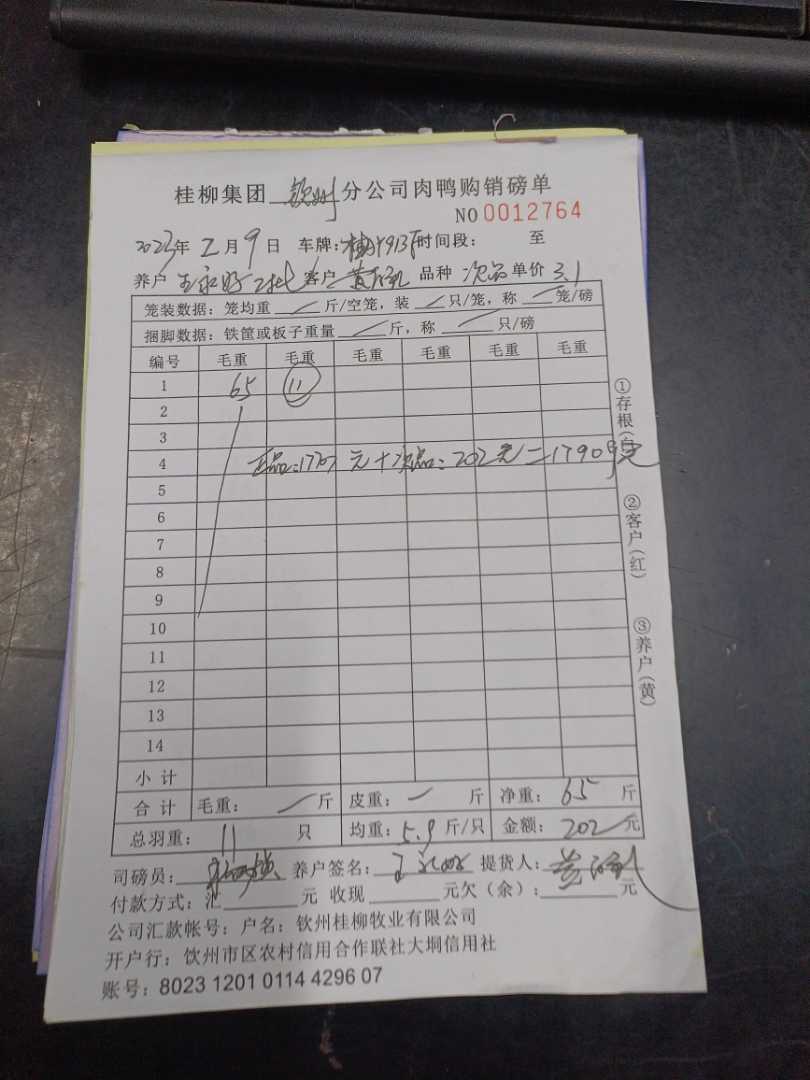 桂柳集团 钦州 分公司肉鸭购销磅单
NO 0012764
2023年 2月 9日 车牌: 时间段: 至
养户 王永好 客户 品种 次品 单价 3.1
笼装数据: 笼均重 斤/空笼, 装 只/笼, 称 笼/磅
捆脚数据: 铁筐或板子重量 斤, 称 只/磅
编号 毛重 毛重 毛重 毛重 毛重 毛重
1 65 11
2
3
4 正品: 元+次品: 202元=
5
6
7
8
9
10
11
12
13
14
小计
合计 毛重: 斤 皮重: 斤 净重: 65 斤
总羽重: 11 只 均重: 5.9 斤/只 金额: 202 元
司磅员: 养户签名: 王永好 提货人:
付款方式: 汇 元 收现 元欠(余): 元
公司汇款帐号: 户名: 钦州桂柳牧业有限公司
开户行: 饮州市区农村信用合作联社大垌信用社
账号: 8023 1201 0114 4296 07
①存根(
②客户(红)
③养户(黄)